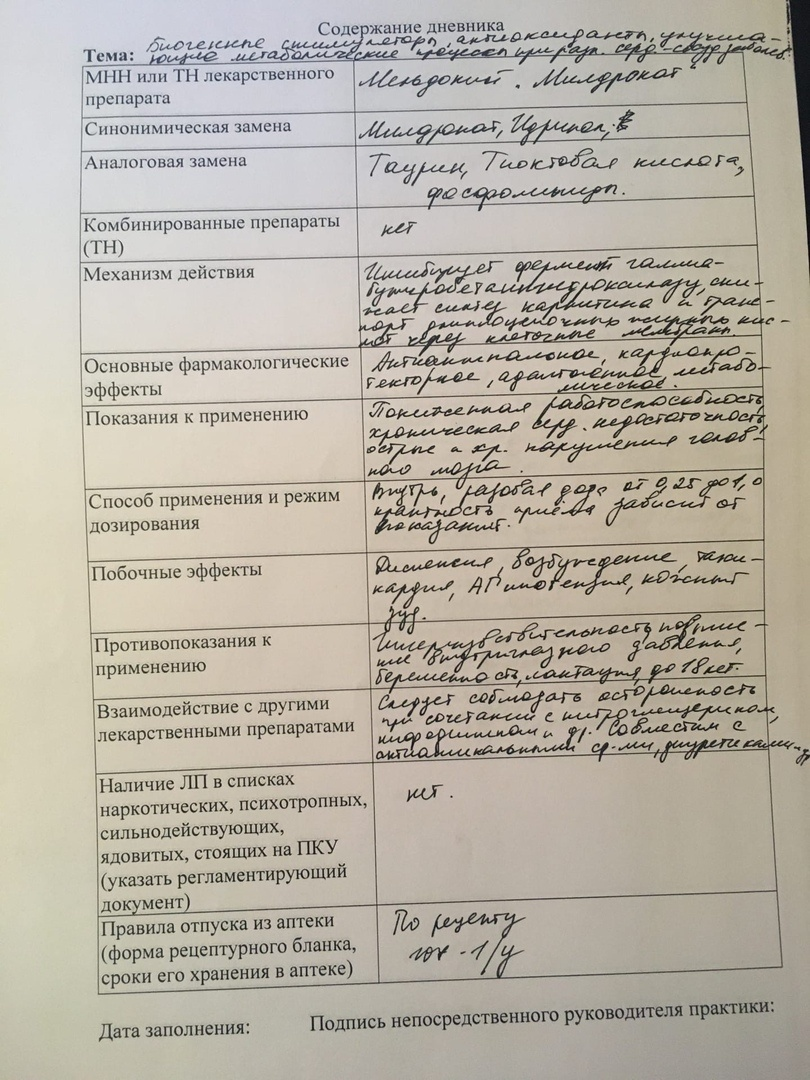 Содержание дневника
Тема: Биогенные стимуляторы, антиоксиданты, улучша-
ющие метаболические процессы при разл. серд-сосуд заболев.
МНН или ТН лекарственного
препарата
Мельдоний „Милдронат“
Синонимическая замена
Милдронат, Идринол,
Аналоговая замена
Таурин, Тиоктовая кислота,
фосфолипиды.
Комбинированные препараты
(ТН)
нет
Механизм действия
Ингибирует фермент гамма-
бутиробетаингидроксилазу, сни-
жает синтез карнитина и транс-
порт длинноцепочных жирных кис-
лот через клеточные мембраны.
Основные фармакологические
эффекты
Антиангинальное, кардиопро-
текторное, адаптогенное, метабо-
лическое.
Показания к применению
Пониженная работоспособность,
хроническая серд. недостаточность,
острые и хр. нарушения голов-
ного мозга.
Способ применения и режим
дозирования
Внутрь, разовая доза от 0,25 до 1,0
кратность приёма зависит от
показаний.
Побочные эффекты
Диспепсия, возбуждение, тахи-
кардия, АГипотензия, кожный
зуд.
Противопоказания к
применению
Гиперчувствительность, повыше-
ние внутриглазного давления,
беременность, лактация, до 18 лет.
Взаимодействие с другими
лекарственными препаратами
Следует соблюдать осторожность
при сочетании с нитроглицерином,
нифедипином и др. Совместим с
антиангинальными ср-ми, диуретиками и др
Наличие ЛП в списках
наркотических, психотропных,
сильнодействующих,
ядовитых, стоящих на ПКУ
(указать регламентирующий
документ)
нет.
Правила отпуска из аптеки
(форма рецептурного бланка,
сроки его хранения в аптеке)
По рецепту
107-1/у
Дата заполнения:
Подпись непосредственного руководителя практики: